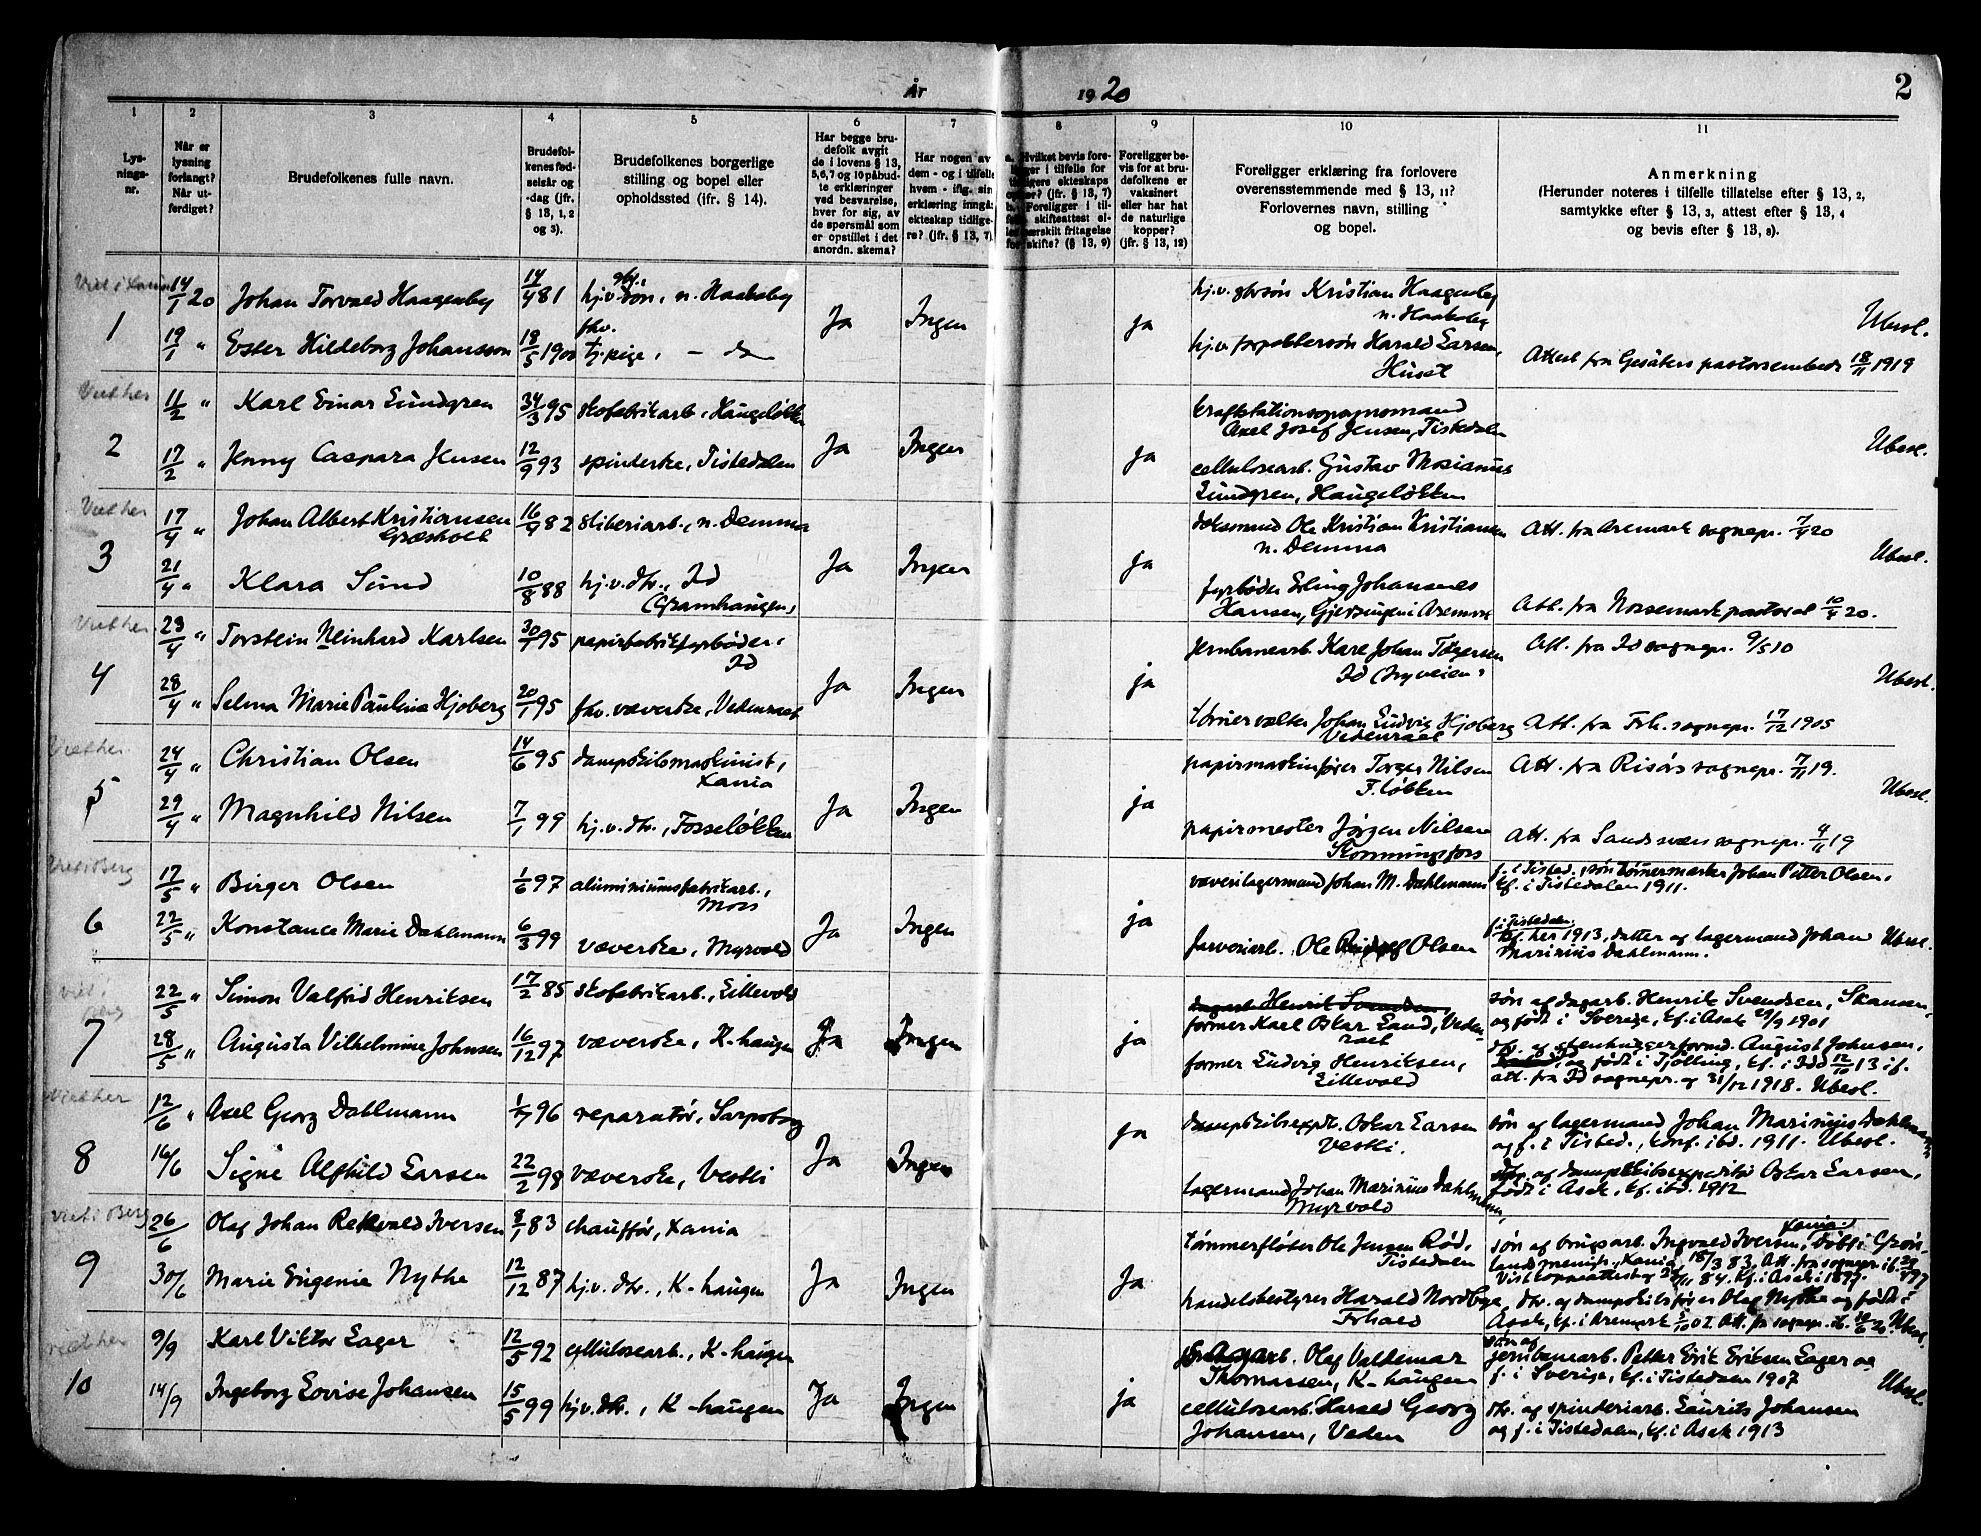 År 1920
2
1 2 3 4 5 6 7 8 9 10 11
Lys-
nings-
nr.
Når er
lysning
forlangt?
Når ut-
ferdiget?
Brudefolkenes fulle navn.
Brudefol-
kenes fød-
selsår og
-dag (jfr.
§ 13, 1, 2
og 3).
Brudefolkenes borgerlige
stilling og bopel eller
opholdssted (jfr. § 14).
Har begge bru-
defolk avgit
de i lovens § 13,
5,6,7 og 10 påbud-
te erklæringer
ved besvarelse,
hver for sig, av
de spørsmål som
er opstillet i det
anordn. skema?
Har nogen av
dem - og i tilfelle
hvem - iflg. sin
erklæring inngåt
ekteskap tidlige-
re? (jfr. § 13, 7)
a. Hvilket bevis fore-
ligger i tilfelle for
tidligere ekteskaps
ophør? (jfr. § 13, 7)
b. Foreligger i til-
felle skifteattest el-
ler særskilt fritagelse
for skifte? (§ 13, 9)
Foreligger be-
vis for at bru-
defolkene er
vaksinert
eller har hat
de naturlige
kopper?
(jfr. § 13, 12)
Foreligger erklæring fra forlovere
overensstemmende med § 13, 11?
Forlovernes navn, stilling
og bopel.
Anmerkning
(Herunder noteres i tilfelle tillatelse efter § 13, 2,
samtykke efter § 13, 3, attest efter § 13, 4
og bevis efter § 13, 8).
1
14/1 20 Johan Torvald Haagenby 14/4 81 hj.v. gbr. søn, n. Haakaby
19/1 " Ester Hildeborg Johansson 18/5 1900 fhv. tj.pige, - do
Ja Ingen ja
hj.v. gbrsøn Kristian Haagenby
n. Haakaby
Harald Larsen,
Huset
Attest fra Gesäters pastorsembede 18/11 1919
Ubesl.
2
Viet her
11/2 " Karl Einar Lundgren 24/3 95 skofabrikarb., Haugeløkken
17/2 " Jenny Caspara Jensen 12/9 93 spinderske, Tistedalen
Ja Ingen ja
Axel Josef Jensen, Tistedalen
cellulosearb. Gustav Mosianus
Lundgren, Haugeløkken
Ubesl.
3
Viet her
17/4 " Johan Albert Kristiansen
Græsholt
16/4 82 sliberiarb., n. Demma
21/4 " Klara Sund 10/8 88 hj.v. dtr., Id
(Gramhaugen)
Ja Ingen ja
Ole Kristian Kristiansen
n. Demma
fyrbøder Erling Johannes
Hansen, i Aremark
Att. fra Aremark sognepr. 7/4 20
Att. fra Nössemark pastorat 10/4 20.
Ubesl.
4
Viet her
23/4 " Torstein Reinhard Karlsen 30/1 95 papirfabrikfyrbøder,
Id
28/4 " Selma Marie Pauline Hjoberg 20/1 95 fhv. væverske, Vedenraet
Ja Ingen ja
jernbanearb. Karl Johan Torgersen
Id (nyveien)
Johan Ludvig Hjoberg
Vedenraet
Att. fra Id sognepr. 9/5 10
Att. fra Frh. sognepr. 17/12 1905
Ubesl.
5
Viet her
24/4 " Christian Olsen 14/6 95 dampskibsmaskinist,
Xania
29/4 " Magnhild Nilsen 7/1 99 hj.v. dtr., Fosseløkken
Ja Ingen ja
papirmaskinfører Torger Nilsen
F.løkken
papirmester Jørgen Nilsen
Skonningsfors
Att. fra Risørs sognepr. 7/11 19.
Att. fra Sandsværs sognepr. 4/11 19
Ubesl.
6
Viet i Berg
17/5 " Birger Olsen 1/6 97 aluminiumsfabrikarb.,
Moss
22/5 " Konstance Marie Dahlmann 6/3 99 væverske, Myrvold
Ja Ingen ja
væverilagermand Johan M. Dahlmann
farveriarb. Ole Olsen
f. i Tisted., søn tømmermerker Johan Petter Olsen,
kf. i Tistedalen 1911.
f. i Tistedalen,
kf. her 1913, datter af lagermand Johan
Marinius Dahlmann.
Ubesl.
7
viet i
Berg
22/5 " Simon Valfrid Henriksen 17/2 85 skofabrikarb., Lillevold
28/5 " Augusta Vilhelmine Johnsen 16/12 97 væverske, K-haugen
Ja Ingen ja
dagarb. Henrik Svendsen,
former Karl Oskar Lund, Veden-
raet
former Ludvig Henriksen,
Lillevold
søn af dagarb. Henrik Svendsen, Skansen,
og født i Sverige, kf. i Asak 29/9 1901
dtr. af stenhuggerformd. August Johnsen,
og født i Tjølling, kf. i Idd 12/10 13 if.
att. fra Id sognepr. af 31/12 1918. Ubesl.
8
Viet her
12/6 " Axel Georg Dahlmann 1/7 96 reparatør, Sarpsborg
16/6 Signe Alfhild Larsen 22/2 98 væverske, Vestli
Ja Ingen ja
dampskibsexpdt. Oskar Larsen
Vestli.
lagermand Johan Marinius Dahlmann,
Myrvold
søn af lagermand Johan Marinius Dahlmann
og f. i Tisted., konf. ibd. 1911. Ubesl.
dtr. af dampskibsexpeditør Oskar Larsen,
født i Asak, kf. ibd. 1912
9
Viet i Berg
26/6 Olaf Johan Rekvald Iversen 8/1 83 chauffør, Xania
30/6 Marie Eugenie Nythe 12/12 87 hj.v. dtr., K-haugen
Ja Ingen Ja
tømmerfløter Ole Jensen Rød,
Tistedalen
handelsbestyrer Harald Nordbye,
Frhald
søn af brugsarb. Ingvald Iversen, Xania, født i Grøn-
lands menigh., Xania, 18/3 83, Att. fra sognepr. ib. 29/4 97
Vist koppeattest af 84. kf. i Asak i 1897.
dtr. af dampskibsfører Olaf Nythe og født i
Asak, kf. i Aremark 5/10 02. Att. fra sognepr. ib. 16/6 20. Ubesl.
10
viet her
9/9 Karl Viktor Lager 12/5 92 cellulosearb., K-haugen
14/9 Ingeborg Lovise Johansen 15/5 99 hj.v. dtr., K-haugen
Ja Ingen ja
Olaf Valdemar
Thomassen, K-haugen
cellulosearb. Harald Georg
Johansen, Veden
søn af
jernbanearb. Petter Erik Eriksen Lager og
f. i Sverige, kf. i Tistedalen 1907
dtr. af spinderiarb. Laurits Johansen
og f. i Tistedalen, kf. i Asak 1913
Ubesl.